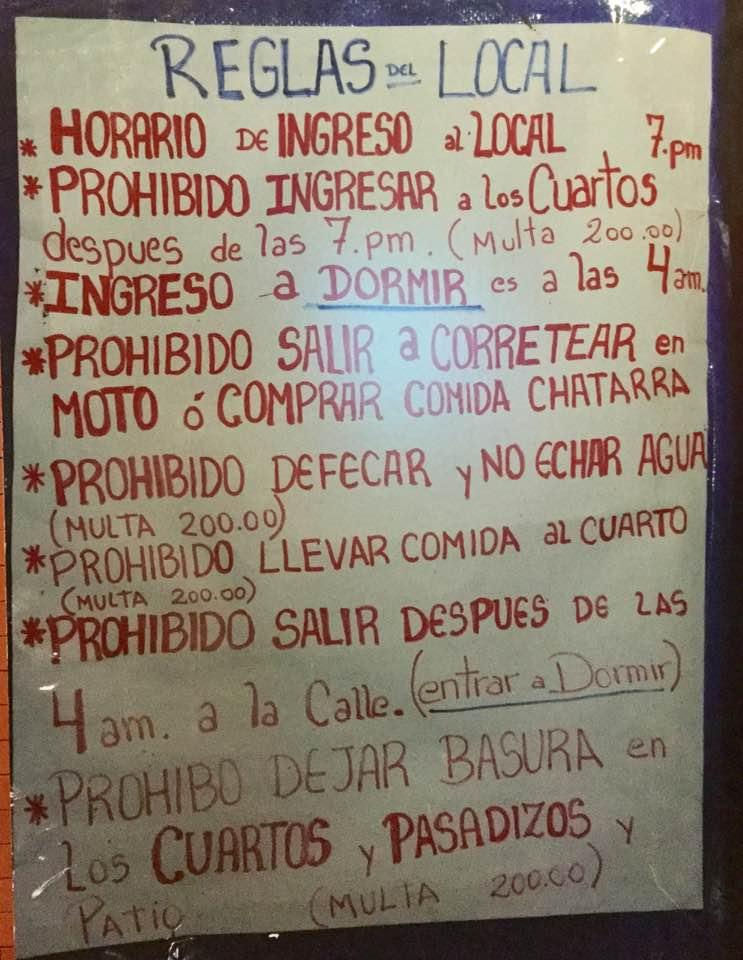 REGLAS DEL LOCAL
* HORARIO DE INGRESO al LOCAL 7.pm
* PROHIBIDO INGRESAR a los Cuartos
despues de las 7.pm. (Multa 200.00)
* INGRESO a DORMIR es a las 4am.
* PROHIBIDO SALIR a CORRETEAR en
MOTO ó COMPRAR COMIDA CHATARRA
* PROHIBIDO DEFECAR y NO ECHAR AGUA
(MULTA 200.00)
* PROHIBIDO LLEVAR COMIDA al CUARTO
(MULTA 200.00)
* PROHIBIDO SALIR DESPUES DE LAS
4am. a la Calle. (entrar a Dormir)
* PROHIBO DEJAR BASURA en
LOS CUARTOS y PASADIZOS y
PATIO (MULTA 200.00)